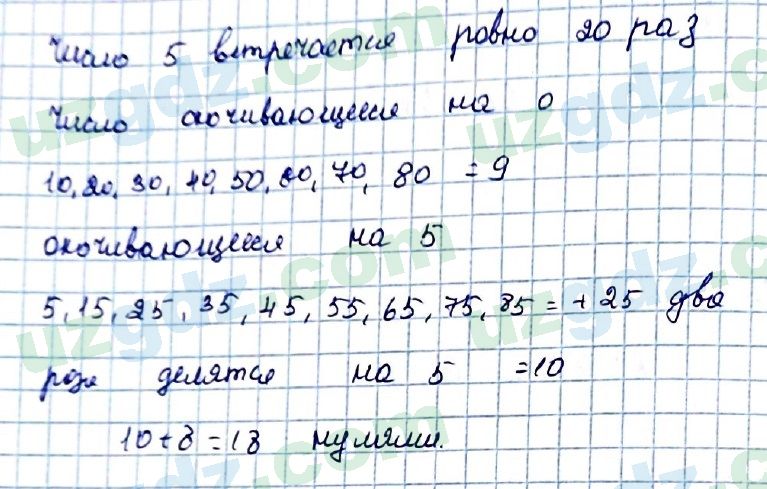 число 5 встречается ровно 20 раз
число окочивающееся на 0
10, 20, 30, 40, 50, 60, 70, 80 = 9
окочивающееся на 5
5, 15, 25, 35, 45, 55, 65, 75, 85 = + 25 два
раза делятся на 5 = 10
10 + 8 = 18 нулями.
uzgdz.com